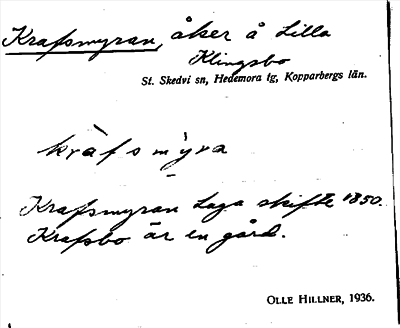 Krafsmyran, åker å Lilla
Klingsbo
St. Skedvi sn, Hedemora tg, Kopparbergs län.
kràfsmỳra
Krafsmyran Laga skifte 1850.
Krafsbo är en gård.
OLLE HILLNER, 1936.